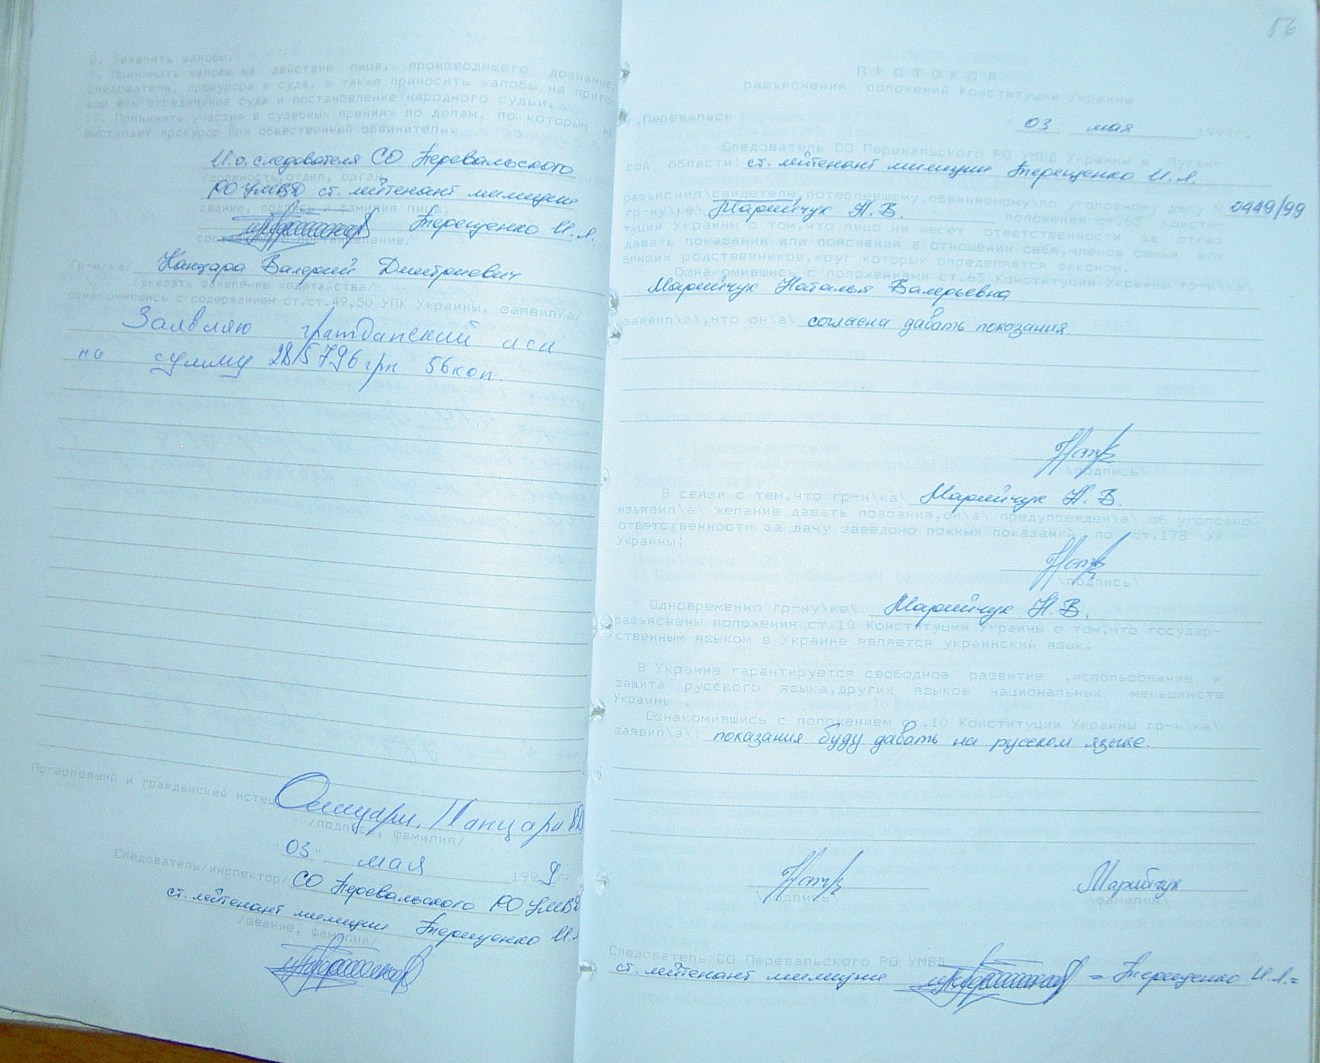 8. Заявлять жалобы.
9. Принимать жалобы на действие лица, производящего дознание,
следователя, прокурора и суда, а также приносить жалобы на приго-
вор или определение суда и постановление народного судьи.
10. Принимать участие в судебных прениях по делам, по которым не
выступает прокурор или общественный обвинитель.
И.о. следователя СО Перевальского
/должность, отдел, орган
РО УМВД ст. лейтенант милиции
звание, подпись и фамилия лица,
Терещенко И.А.
Гр-н/ка/ Канцара Валерий Дмитриевич
/указать заявление ходатайства/
ознакомившись с содержанием ст.ст.49,50 УПК Украины, заявил/а/
Заявляю гражданский иск
на сумму 2815796 грн 56 коп.
Потерпевший и гражданский истец
/подпись, фамилия/
"03" мая 1999г.
Следователь/инспектор/ СО Перевальского РО УМВД
ст. лейтенант милиции Терещенко И.А.
/звание, фамилия/
56
ПРОТОКОЛ
разъяснения положений Конституции Украины
г.Перевальск
"03" мая 1999г.
Следователь СО Перевальского РО УМВД Украины в Луган-
ской области: ст. лейтенант милиции Терещенко И.А.
разъяснил\свидетелю,потерпевшему,обвиняемому\по уголовному делу N 0449/99
гр-ну\ке\ Марийчук Н.В. положения ст.63 Консти-
туции Украины о том,что лицо не несет ответственности за отказ
давать показания или пояснения в отношении себя,членов семьи или
близких родственников,круг которых определяется законом.
Ознакомившись с положениями ст.63 Конституции Украины гр-н\ка\
Марийчук Наталья Валерьевна
заявил\а\,что он\а\ согласна давать показания.
\подпись\
В связи с тем,что гр-н\ка\ Марийчук Н.В.
изъявил\а\ желание давать показания,он\а\ предупрежден\а\ об уголовно
ответственности за дачу заведомо ложных показаний по ст.178 УК
Украины:
\подпись\
Одновременно гр-ну\ке\ Марийчук Н.В.
разъяснены положения ст.10 Конституции Украины о том,что государ-
ственным языком в Украине является украинский язык.
В Украине гарантируется свободное развитие ,использование и
защита русского языка,других языков национальных меньшинств
Украины.
Ознакомившись с положением ст.10 Конституции Украины гр-н\ка\
заявил\а\: показания буду давать на русском языке.
Марийчук
\подпись\ \фамилия\
Следователь СО Перевальского РО УМВД
ст. лейтенант милиции = Терещенко И.А. =